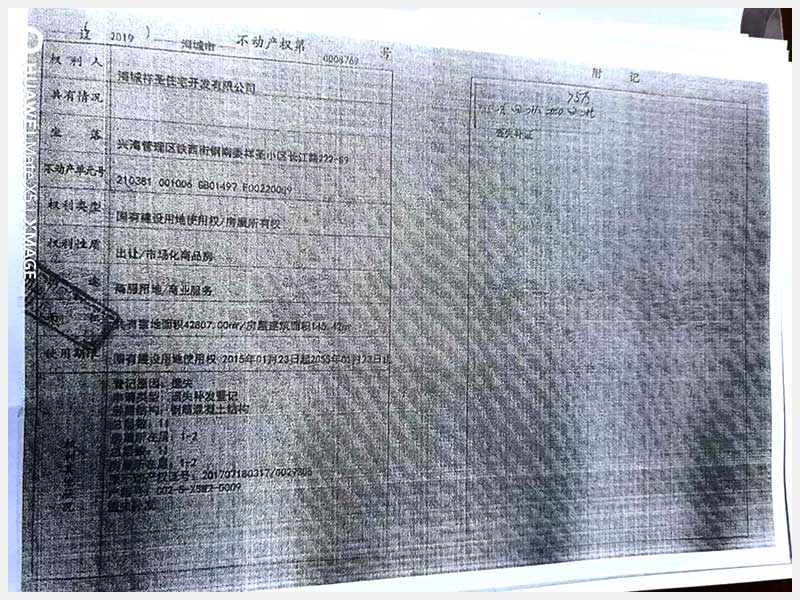 辽 2019 ) 海城市 不动产权第 0008769 号
权利人 海城祥圣住宅开发有限公司
共有情况
坐落 兴海管理区铁西街钢南委祥圣小区长江路222-S9
不动产单元号 210381 001006 GB01497 F00220009
权利类型 国有建设用地使用权/房屋所有权
权利性质 出让/市场化商品房
途 商服用地/商业服务
共有宗地面积42807.00㎡/房屋建筑面积145.42㎡
使用期限 国有建设用地使用权 2015年01月23日起2055年01月23日止
登记原因：遗失
申请类型：遗失补发登记
房屋结构：钢筋混凝土结构
总层数：11
房屋所在层：1-2
总层数：11
房屋所在层：1-2
不动产权证号：201707180317/0029306
遗失补发
附 记
遗失补证
HUAWEI Mate X5 | XMAGE